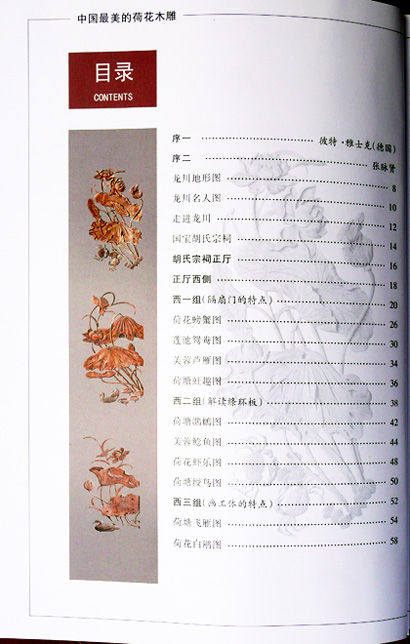 中国最美的荷花木雕
目录
CONTENTS
序一 彼特·雅士克(德国)
序二 张脉贤
龙川地形图 8
龙川名人图 10
走进龙川 12
国宝胡氏宗祠 14
胡氏宗祠正厅 16
正厅西侧 18
西一组(隔扇门的特点) 20
荷花螃蟹图 26
莲池鸳鸯图 30
芙蓉芦雁图 34
荷塘蛙趣图 36
西二组(解读绦环板) 38
荷塘图 42
芙蓉鲶鱼图 44
荷花虾乐图 48
荷塘绶鸟图 50
西三组(画工体的特点) 52
荷塘飞雁图 54
荷花白鹇图 58